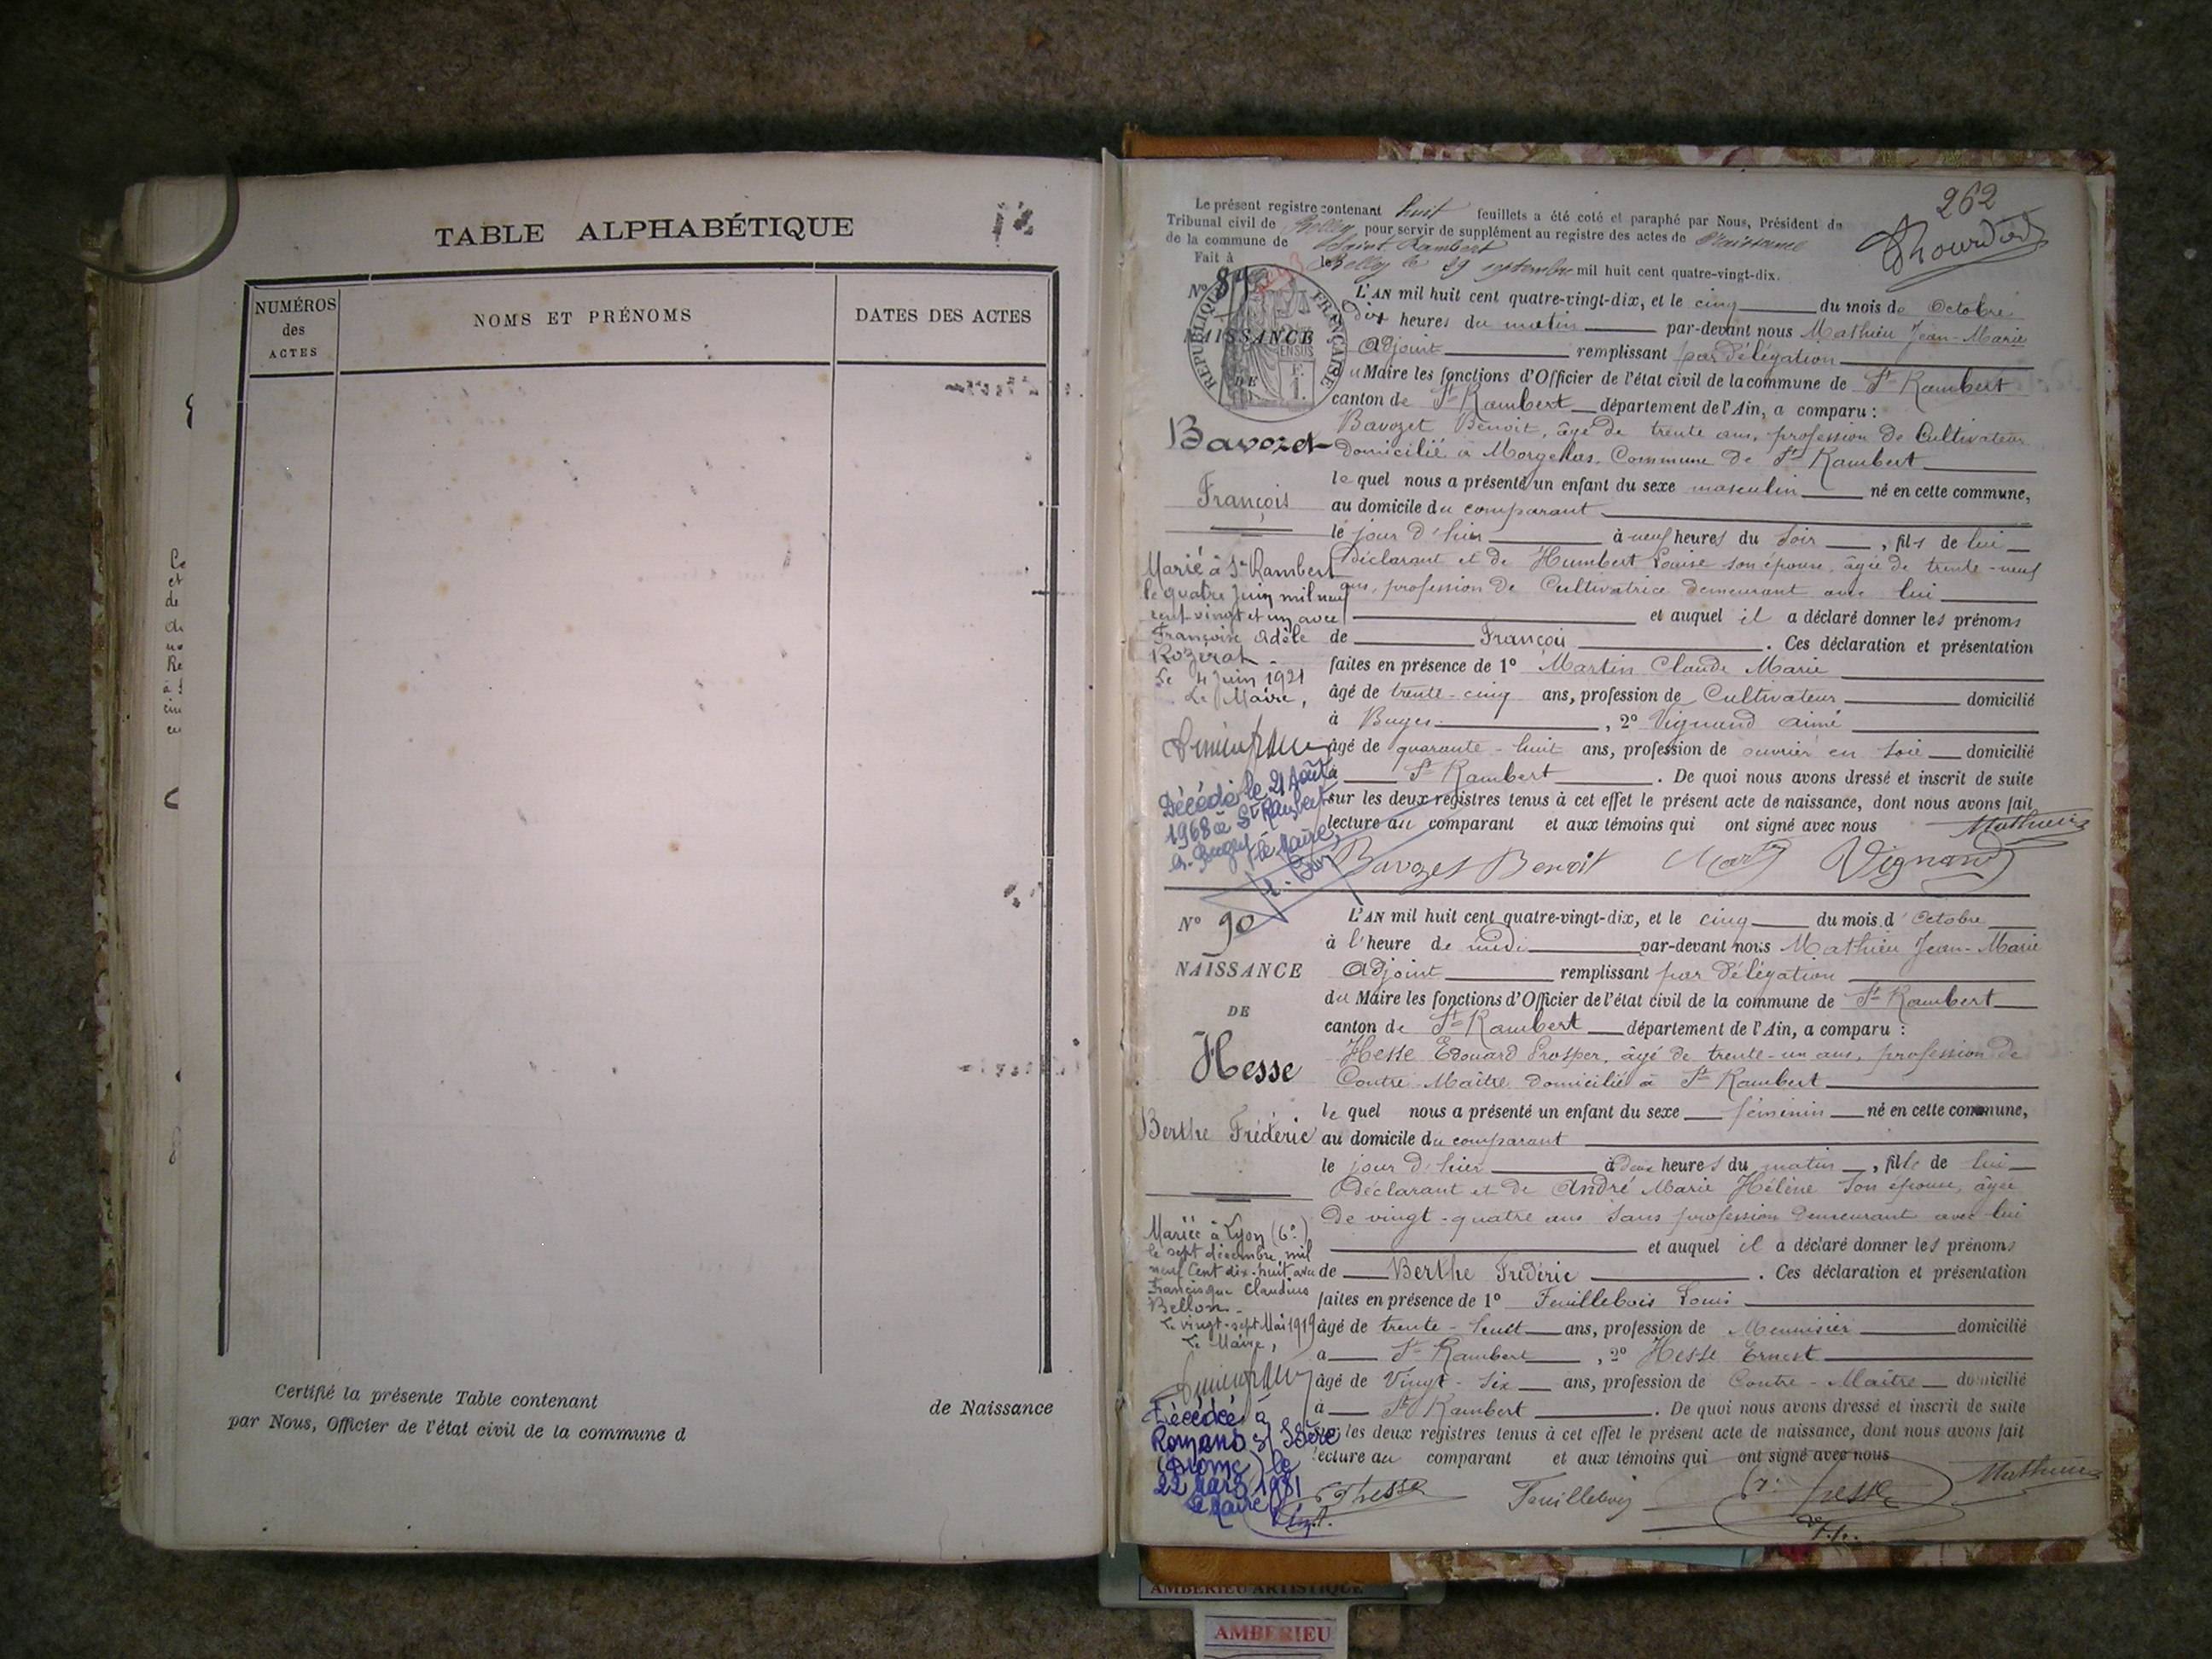 TABLE ALPHABÉTIQUE
NUMÉROS
des
ACTES
NOMS ET PRÉNOMS
DATES DES ACTES
Certifié la présente Table contenant de Naissance
par Nous, Officier de l'état civil de la commune d
262
Le présent registre contenant huit feuillets a été coté et paraphé par Nous, Président du
Tribunal civil de Belley pour servir de supplément au registre des actes de Naissance
de la commune de Saint Rambert
Fait à Belley le 29 septembre mil huit cent quatre-vingt-dix.
N° 89
NAISSANCE
DE
RÉPUBLIQUE FRANÇAISE
Bavozet
François
L'AN mil huit cent quatre-vingt-dix, et le cinq du mois de Octobre
Dix heures du matin par-devant nous Mathieu Jean-Marie
Adjoint remplissant par délégation
u Maire les fonctions d'Officier de l'état civil de la commune de St Rambert
canton de St Rambert département de l'Ain, a comparu :
Bavozet Benoit, âgé de trente ans, profession de Cultivateur
domicilié à Morgelas. Commune de St Rambert
le quel nous a présenté un enfant du sexe masculin né en cette commune,
au domicile du comparant
le jour d'hier à neuf heures du soir, fils de lui
Déclarant et de Humbert Louise son épouse, âgée de trente-neuf
ans, profession de Cultivatrice demeurant avec lui
et auquel il a déclaré donner les prénoms
de François. Ces déclaration et présentation
faites en présence de 1° Martin Claude Marie
âgé de trente-cinq ans, profession de Cultivateur domicilié
à Buges, 2° Vignand aimé
âgé de quarante-huit ans, profession de ouvrier en soie domicilié
à St Rambert. De quoi nous avons dressé et inscrit de suite
sur les deux registres tenus à cet effet le présent acte de naissance, dont nous avons fait
lecture au comparant et aux témoins qui ont signé avec nous
Mathieu
Bavozet Benoit Vignand
Marié à St Rambert
le quatre juin mil neuf
cent vingt et un avec
Françoise Adèle
Rozérat
Le 4 Juin 1921
Le Maire,
Décédé le 21 Août
1968 à St Rambert
en Bugey le Maire,
N° 90
NAISSANCE
DE
Hesse
Berthe Fréderic
L'AN mil huit cent quatre-vingt-dix, et le cinq du mois d'Octobre
à l'heure de midi par-devant nous Mathieu Jean-Marie
Adjoint remplissant par délégation
du Maire les fonctions d'Officier de l'état civil de la commune de St Rambert
canton de St Rambert département de l'Ain, a comparu :
Hesse Edouard Prosper, âgé de trente-un ans, profession de
Contre-Maître domicilié à St Rambert
le quel nous a présenté un enfant du sexe féminin né en cette commune,
au domicile du comparant
le jour d'hier à deux heures du matin, fille de lui
Déclarant et de André Marie Hélène son épouse, âgée
de vingt-quatre ans sans profession demeurant avec lui
et auquel il a déclaré donner les prénoms
de Berthe Fréderic. Ces déclaration et présentation
faites en présence de 1° Feuillebois Louis
âgé de trente-huit ans, profession de Menuisier domicilié
a St Rambert, 2° Hesse Ernest
âgé de Vingt-six ans, profession de Contre-Maître domicilié
à St Rambert. De quoi nous avons dressé et inscrit de suite
sur les deux registres tenus à cet effet le présent acte de naissance, dont nous avons fait
lecture au comparant et aux témoins qui ont signé avec nous
Mathieu
Hesse Feuillebois Hesse
Mariée à Lyon (6e)
le sept décembre mil
neuf Cent dix-huit avec
Francisque Claudius
Bellon
Le vingt-sept Mai 1919
Le Maire,
Décédée à
Romans s/ Isère
(Drome) le
22 Mars 1981
Le Maire
AMBERIEU ARTISTIQUE
AMBERIEU